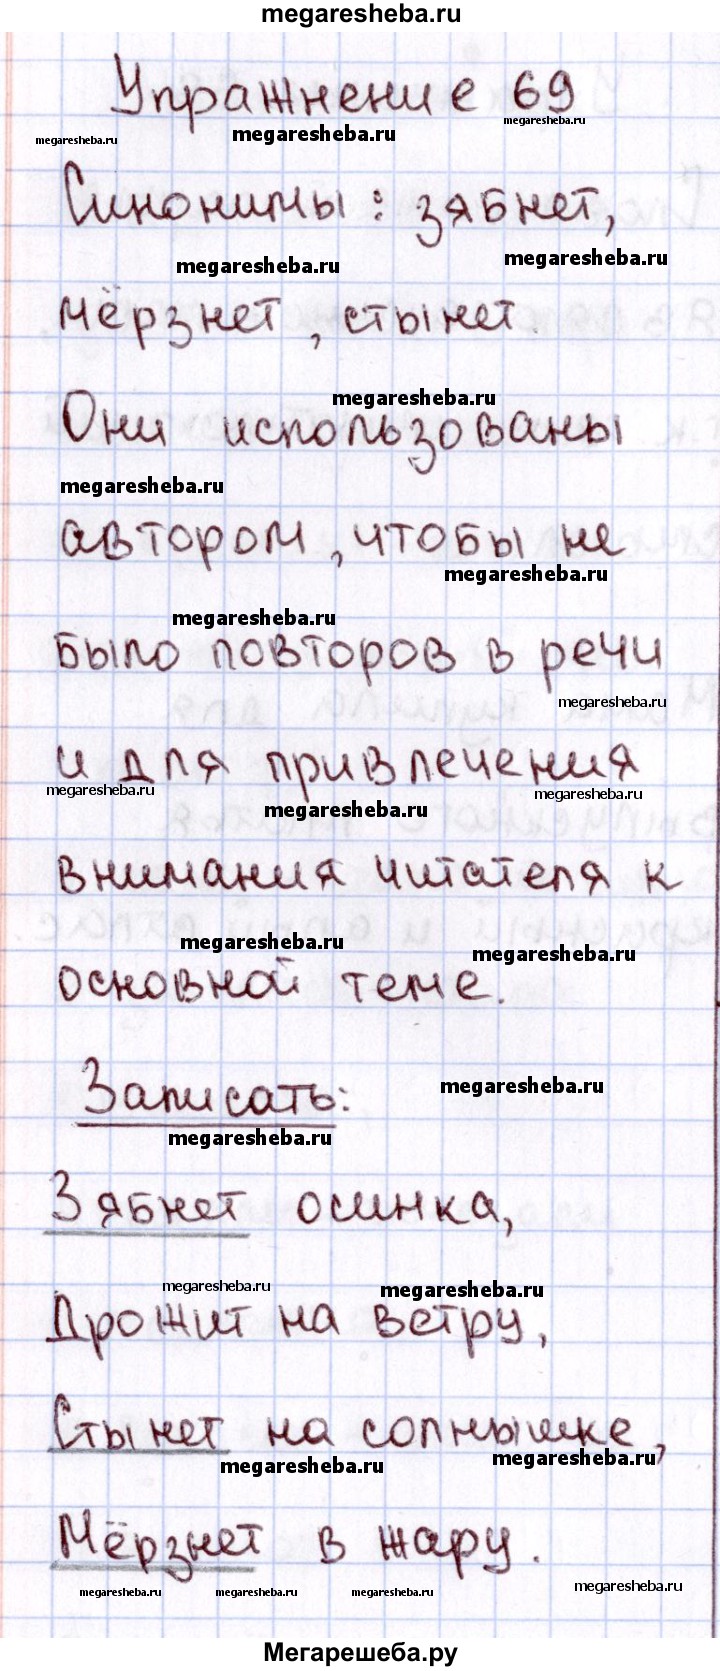 megaresheba.ru
Упражнение 69
megaresheba.ru megaresheba.ru megaresheba.ru
Синонимы: зябнет,
megaresheba.ru megaresheba.ru
мёрзнет, стынет.
megaresheba.ru
Они использованы
megaresheba.ru
автором, чтобы не
megaresheba.ru
megaresheba.ru
было повторов в речи
megaresheba.ru
и для привлечения
megaresheba.ru megaresheba.ru megaresheba.ru
внимания читателя к
megaresheba.ru megaresheba.ru
основной теме.
Записать: megaresheba.ru
megaresheba.ru
Зябнет осинка,
megaresheba.ru megaresheba.ru
Дрожит на ветру,
Стынет на солнышке,
megaresheba.ru megaresheba.ru
Мёрзнет в жару.
megaresheba.ru megaresheba.ru megaresheba.ru megaresheba.ru
Мегарешеба.ру